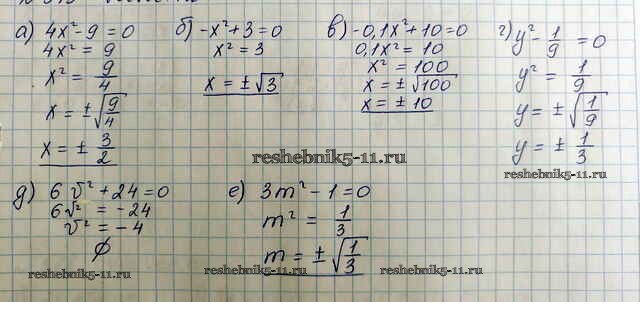 а) 4x² - 9 = 0
4x² = 9
x² = 9/4
x = ±√(9/4)
x = ± 3/2
б) -x² + 3 = 0
x² = 3
x = ±√3
в) -0,1x² + 10 = 0
0,1x² = 10
x² = 100
x = ±√100
x = ± 10
г) y² - 1/9 = 0
y² = 1/9
y = ±√(1/9)
y = ± 1/3
reshebnik5-11.ru
д) 6v² + 24 = 0
6v² = -24
v² = -4
∅
е) 3m² - 1 = 0
m² = 1/3
m = ±√(1/3)
reshebnik5-11.ru
reshebnik5-11.ru
reshebnik5-11.ru